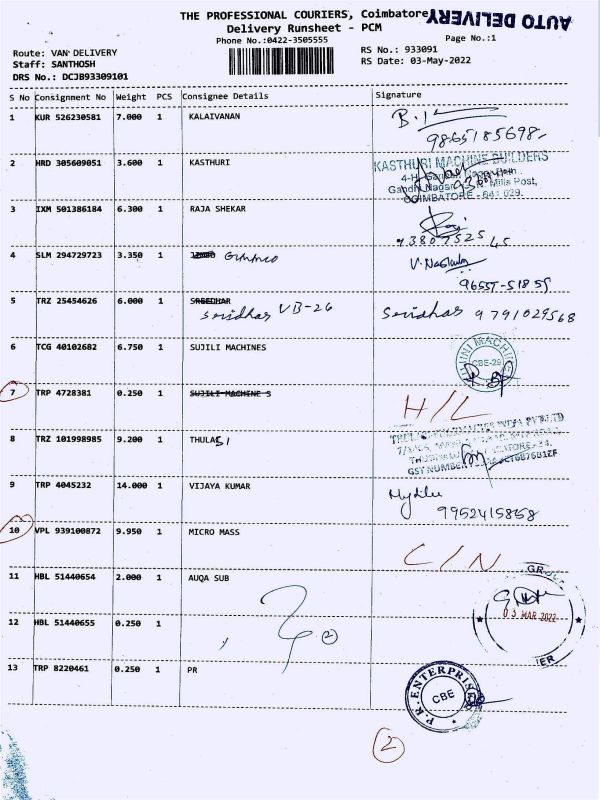 THE PROFESSIONAL COURIERS, Coimbatore
AUTO DELIVERY
Delivery Runsheet - PCM
Phone No.:0422-3505555
Page No.:1
Route: VAN DELIVERY
RS No.: 933091
Staff: SANTHOSH
RS Date: 03-May-2022
DRS No.: DCJB93309101
S No Consignment No Weight PCS Consignee Details Signature
1 KUR 526230581 7.000 1 KALAIVANAN
9865185698
2 HRD 305609051 3.600 1 KASTHURI KASTHURI MACHINE BUILDERS
Mills Post,
COIMBATORE - 641 029.
3 IXM 501386184 6.300 1 RAJA SHEKAR
9380752545
4 SLM 294729723 3.350 1
96557-51855
5 TRZ 25454626 6.000 1 SREEDHAR
Sridhar VB-26 Sridhar 9791029568
6 TCG 40102682 6.750 1 SUJILI MACHINES
CBE-29
7 TRP 4728381 0.250 1 SUJILI MACHINE S H/L
8 TRZ 101998985 9.200 1 THULASI
GST NUMBER
9 TRP 4045232 14.000 1 VIJAYA KUMAR
9952415868
10 VPL 939100872 9.950 1 MICRO MASS C/N
11 HBL 51440654 2.000 1 AUQA SUB
03 MAR 2022
12 HBL 51440655 0.250 1
2
13 TRP 8220461 0.250 1 PR
P.R. ENTERPRISE
CBE
2